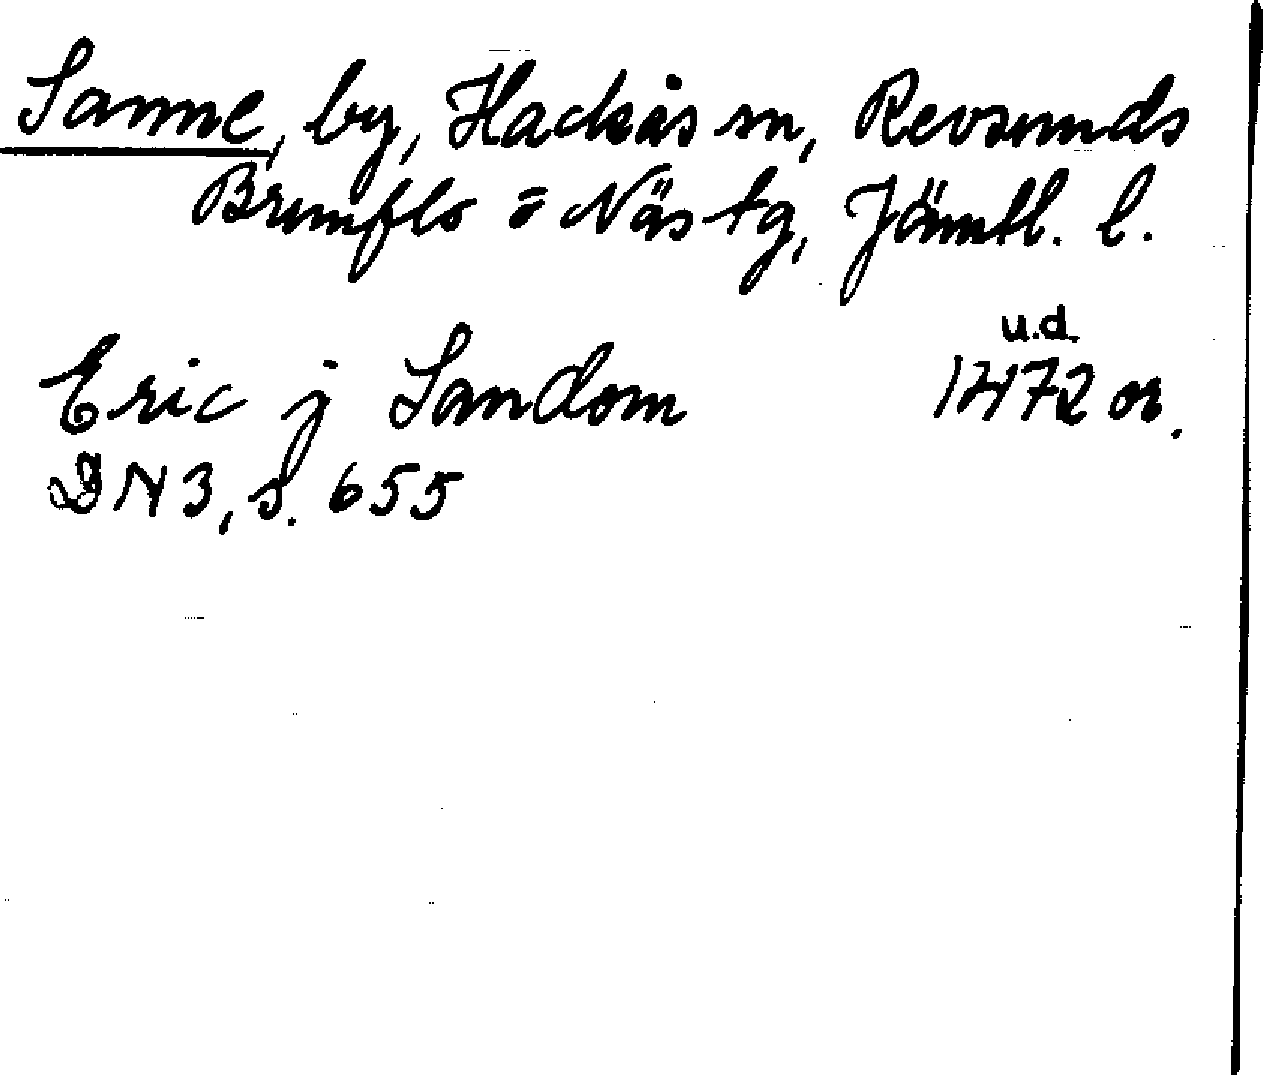 Sanne, by, Hackås sn, Revsunds
Brunflo o Näs tg, Jämtl. l.
u.d.
Eric j Sandom 1472 or.
DN 3, s. 655